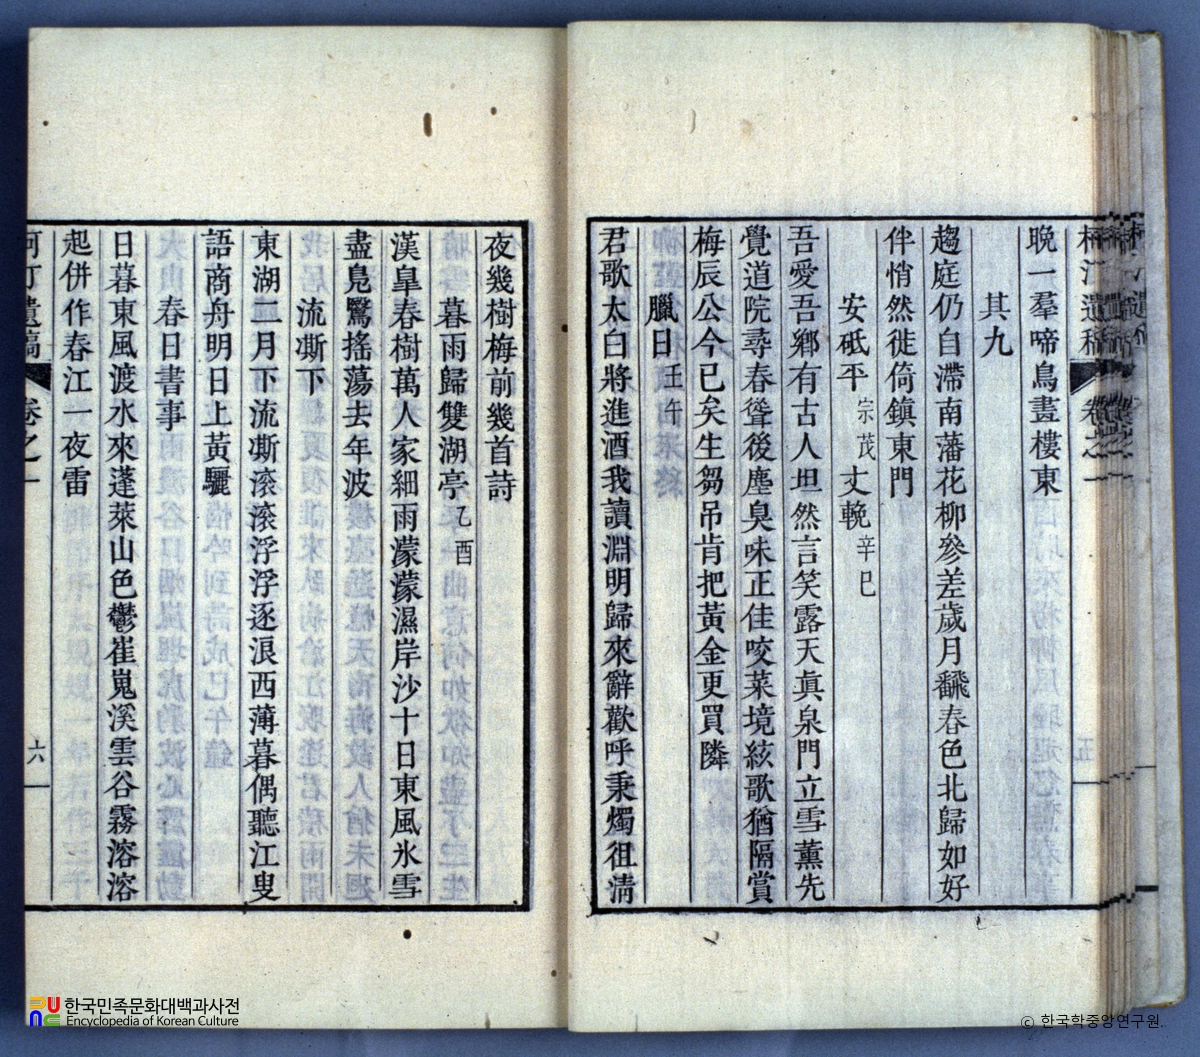 卷之一
晩一羣啼鳥晝樓東
其九
趨庭仍自滯南藩花柳參差歲月飜春色北歸如好
伴悄然徙倚鎮東門
安砥平宗茂丈輓辛巳
吾愛吾鄕有古人坦然言笑露天眞泉門立雪薰先
覺道院尋春聳後塵臭味正佳咬菜境絃歌猶隔賞
梅辰公今已矣生芻吊肯把黃金更買隣
臘日壬午
君歌太白將進酒我讀淵明歸來辭歡呼秉燭徂淸
夜幾樹梅前幾首詩
暮雨歸雙湖亭乙酉
漢皐春樹萬人家細雨濛濛濕岸沙十日東風氷雪
盡鳧鷖搖蕩去年波
流凘下
東湖二月下流凘滾滾浮浮逐浪西薄暮偶聽江叟
語商舟明日上黃驪
春日書事
日暮東風渡水來蓬萊山色鬱崔嵬溪雲谷霧溶溶
起併作春江一夜雷
遺稿 卷之一 六
한국민족문화대백과사전
Encyclopedia of Korean Culture
© 한국학중앙연구원.